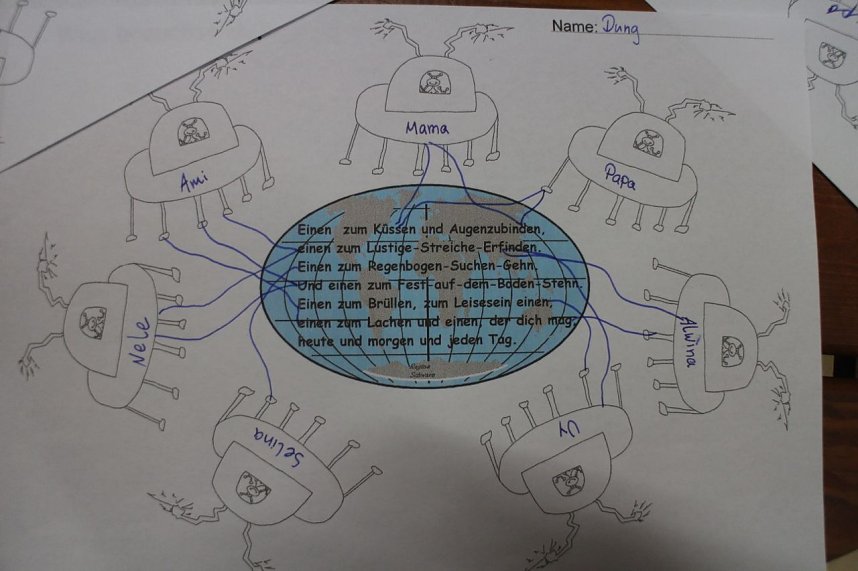 Name: Dung
Mama
Papa
Ami
Einen zum Küssen und Augenzubinden,
einen zum Lustige-Streiche-Erfinden.
Einen zum Regenbogen-Suchen-Gehn.
Und einen zum Fest-auf-dem-Boden-Stehn.
Einen zum Brüllen, zum Leisesein einen,
einen zum Lachen und einen, der dich mag,
heute und morgen und jeden Tag.
Regina
Schwarz
Nele
Alwina
Selina
Uy